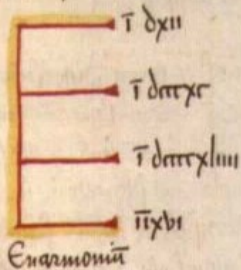 ī dxii
ī dcccxc
ī dccccxliiii
īīxvi
Enarmoniū